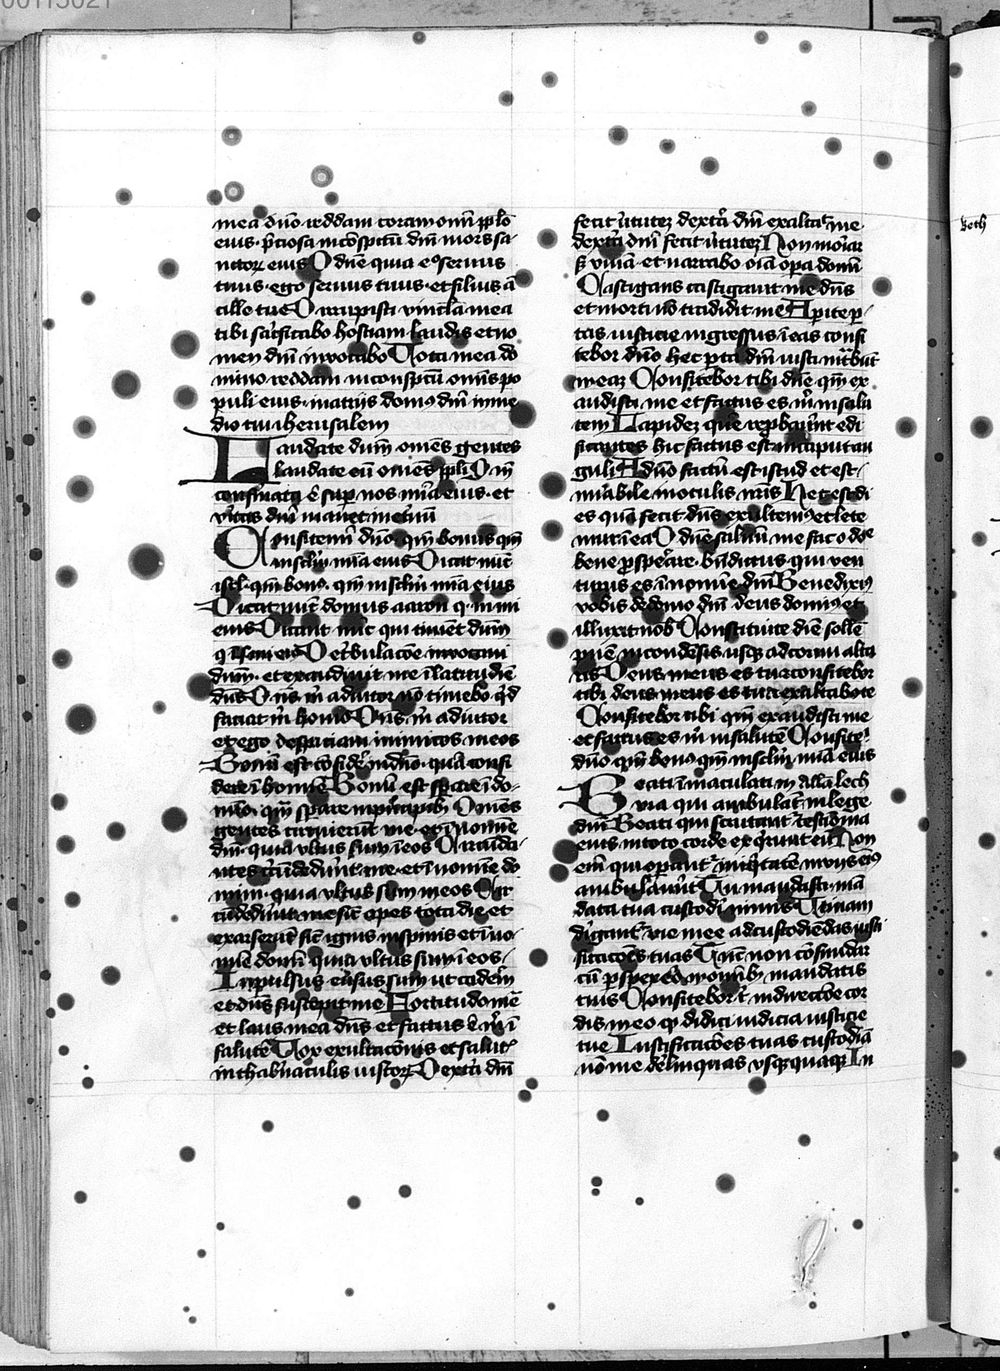 mea dn̄o reddam coram om̄i pp̄lo
eius · p̄ciosa in cōspectu dn̄i mors sa-
nctoꝝ eius O dn̄e quia ego seruus
tuus · ego seruus tuus · et filius ā
cille tue Dirrupisti vincl̄a mea
tibi sac̄ficabo hostiam laudis et no
men dn̄i inuocabo Vota mea do
mino reddam in conspc̄tu om̄is po
puli eius · in atrijs domꝰ dn̄i in me
dio tui iherusalem
Laudate dn̄m omēs gentes
laudate eū omēs pp̄li Qm̄
confirmata ē sup̄ nos mīa eius · et
v̄itas dn̄i manet in et̄nū
Confitemī dn̄o · qm̄ bonus qm̄
in sc̄lm̄ mīa eius Dicat nūc
isrl̄ · qm̄ bonꝰ · qm̄ in sc̄lm̄ mīa eius
Dicat nūc domus aaron q · in
eius Dicant nūc qui timēt dn̄m
De tbulacōe inuocaui
dn̄m · et exaudiuit me ī latitudīe
dn̄s Dn̄s m̄ adiutor nō timebo qd
faciat m̄ homo Dn̄s m̄ adiutor
et ego despiciam inimicos meos
Bonū est cōfidē in dn̄o · quā confi
dere ī homīe Bonū est sp̄are ī do-
mīo · qm̄ sp̄are in pn̄cipib; Omēs
gentes circuierūt me · et ī nomīe
dn̄i · quia vltus sum ī eos Circūda-
ntes circūdedert me · et ī nomīe do
mini · quia vltus sum in eos Cir
cūdedert me sic̄ apes tota die et
exarserūt sic̄ ignis in spinis et ī no-
mīe domī quia vltus sum ī eos ·
Inpulsus eu̓sus sum ut cadem̄
et dn̄s suscepit me Fortitudo mē
et laus mea dn̄s et factus ē m̄ ī
salutē Vox exultacōnis et salut̄
in thab̄naculis iustoꝝ Dextra dn̄i
fecit v̄tutez dextra dn̄i exaltauit me ·
dextra dn̄i fecit v̄tutez Non moriar
ꝫ viuā · et narrabo oīa opa domī
Castigans castigauit me dn̄s
et morti nō tradidit me Apite p-
tas iusticie ingressus ī eas confi
tebor dn̄o hec pta dn̄i iusti int̄bunt
in eaz Confitebor tibi dn̄e qm̄ ex
audisti me et factus es m̄ in salu
tem Lapidez quē repbauer̄t edi
ficantes hic factus est in caput an
guli A dn̄o factū est istud et est ·
mirabile in oculis nr̄is Hec est di
es quā fecit dn̄s exultemꝰ et lete
mur ī ea O dn̄e saluū me fac o dn̄e
bene pspe̓are · bn̄dictus qui ven
turus es ī nomīe dn̄i Benediximꝰ
vobis de domo dn̄i deus dominꝰ et
illuxit nob̄ Constituite diē sollē
pnē in condensis usqꝫ ad cornu alta
ris Deus meus es tu et confitebor
tibi deus meus es tu et exaltabo te
Confitebor tibi qm̄ exaudisti me
et factus es m̄ in salutē Confite
dn̄o qm̄ bonꝰ qm̄ in sclm̄ mīa eius
Beati īmaculati in Alla lech
via qui ambulāt in lege
dn̄i Beati qui scrutant̄ testiōnia
eius in toto corde exqrunt eū Non
em̄ qui opant̄ iniqtatē in vijs eiꝰ
ambulauert Tu mandasti mā
data tua custodi nimis Vtinam
dirigant̄ vie mee ad custodiēdas iusti
ficacōes tuas Tūc non cōfundar
cū pspexero in omīb; mandatis
tuis Confitebor t̄ in direccōe cor
dis in eo qd didici iudicia iusticie
tue Iustificacōes tuas custodiā
nō me derelinquas vsqꝫquaqꝫ In
beth